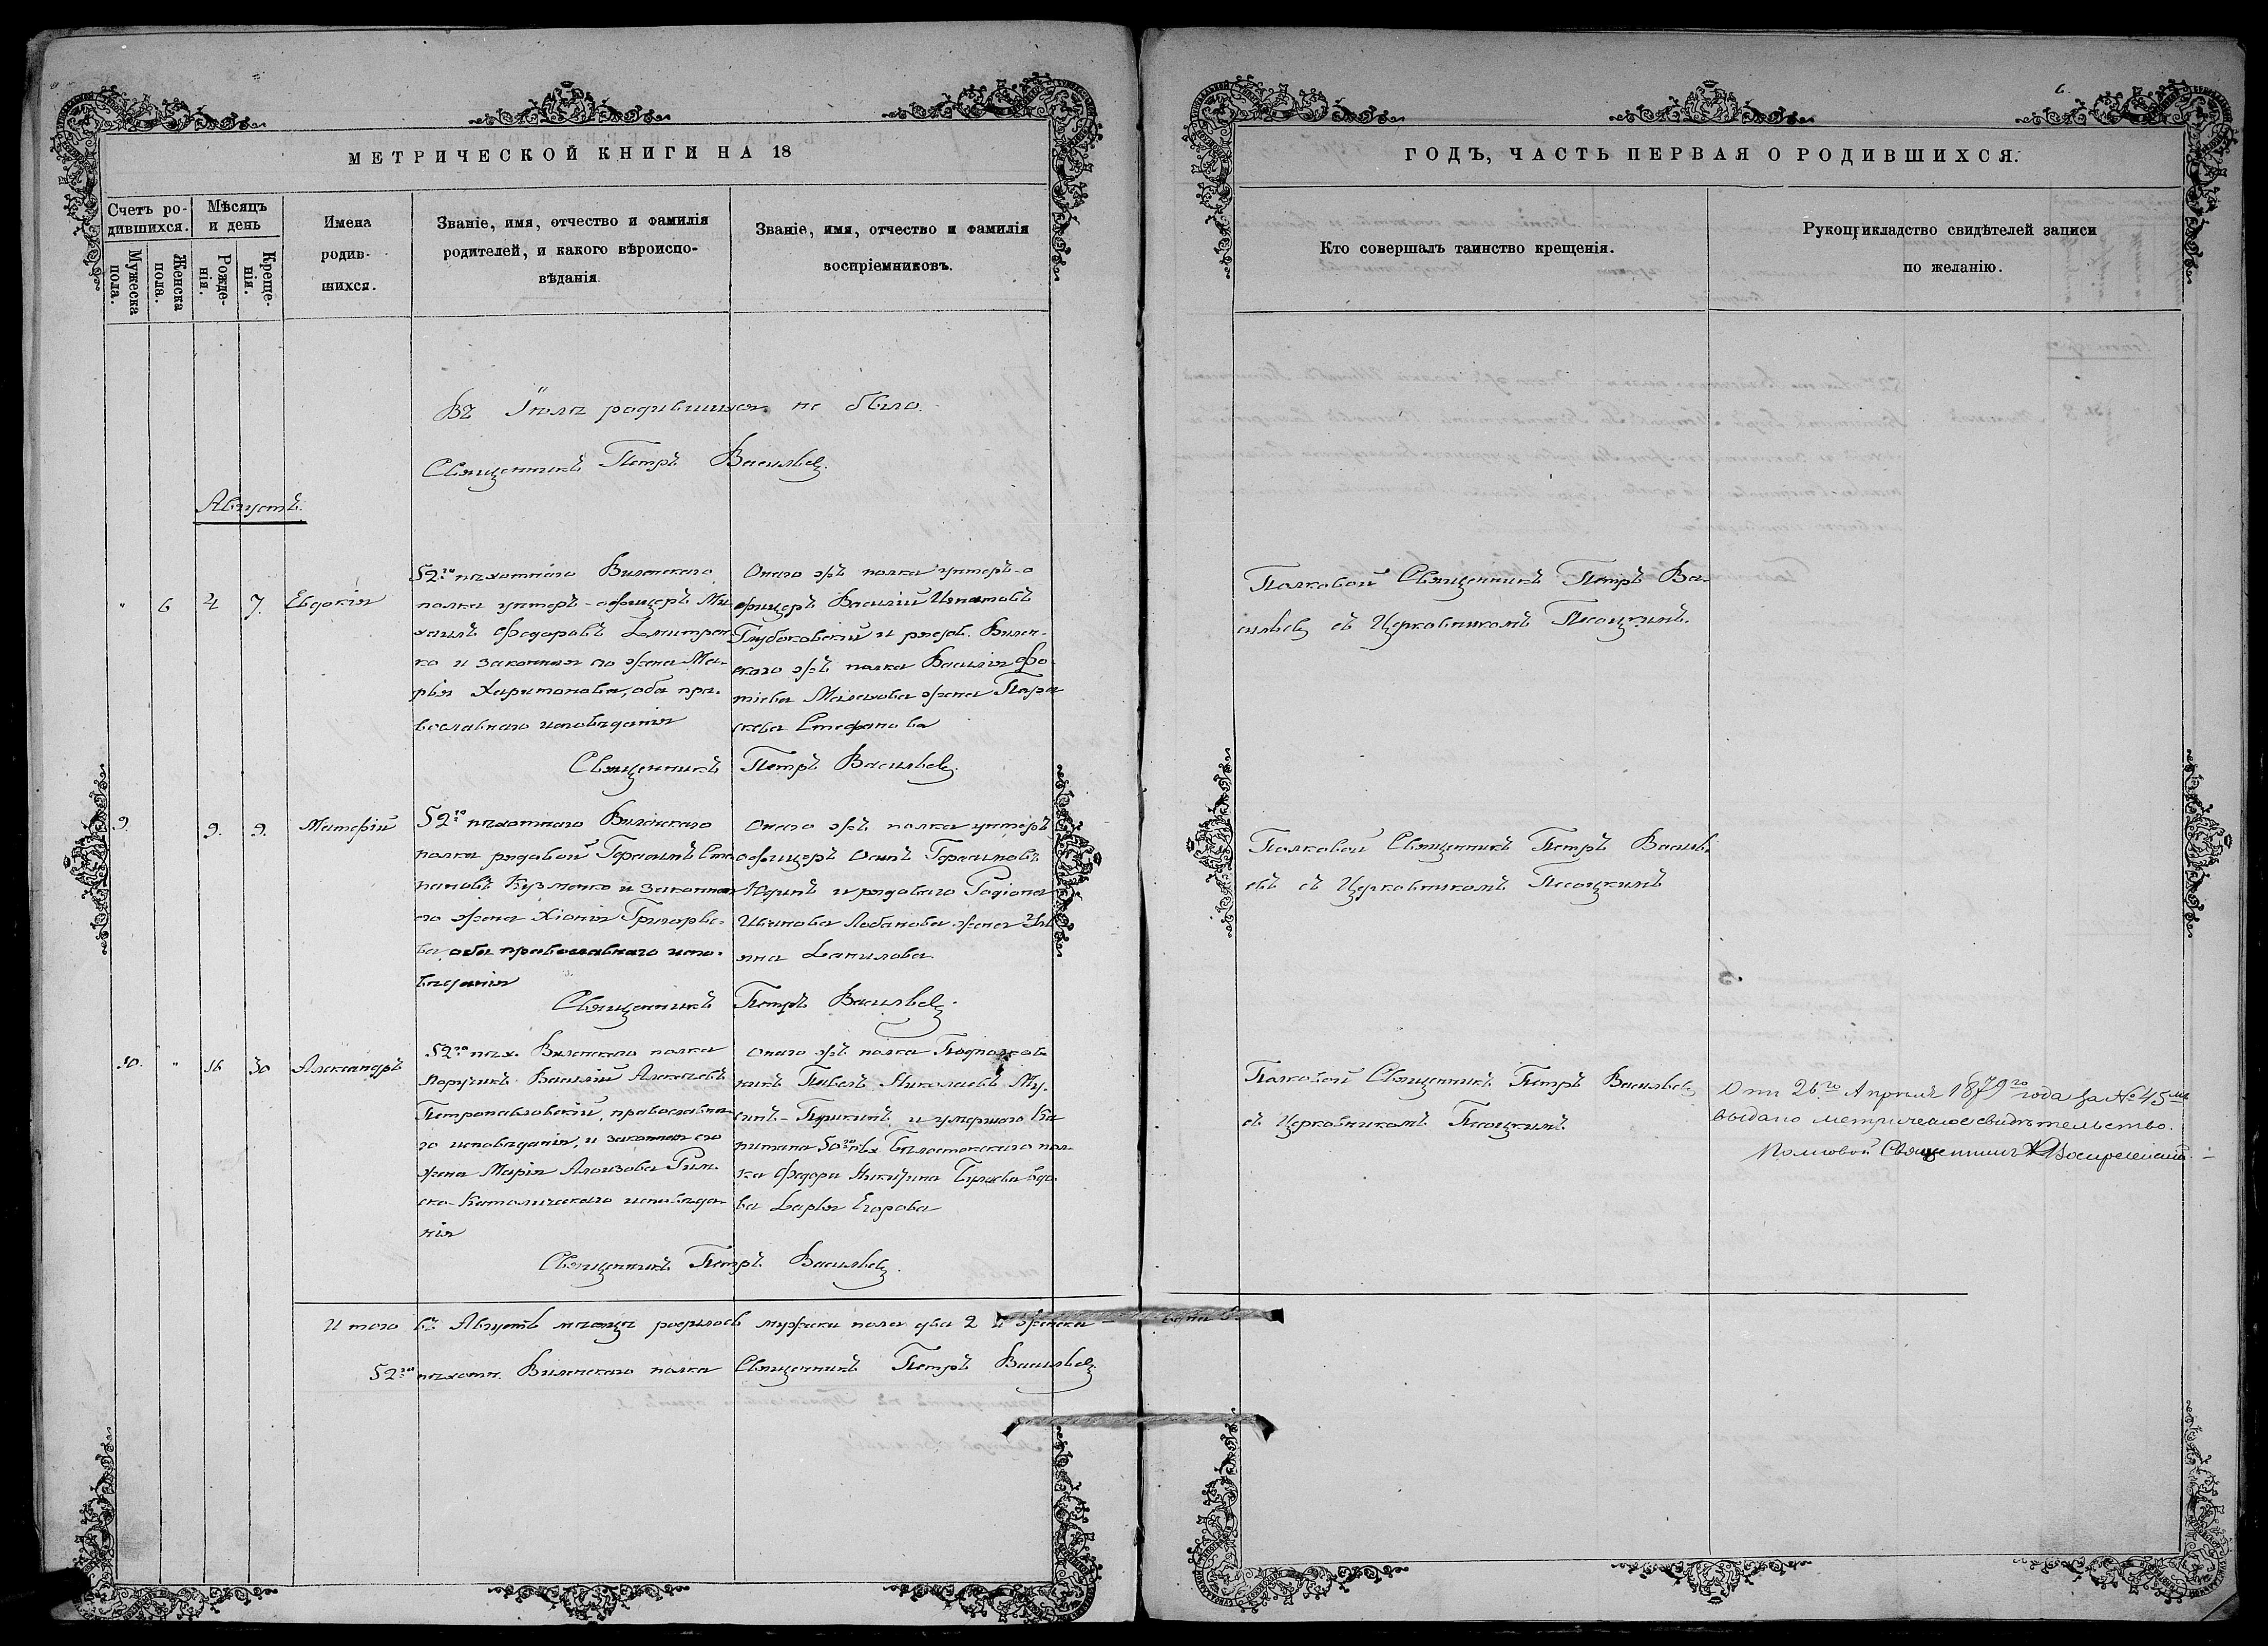 МЕТРИЧЕСКОЙ КНИГИ НА 18
Счетъ ро-
дившихся.
Мужеска
пола.
Женска
пола.
Мѣсяцъ
и день
Рожде-
нія.
Креще-
нія.
Имена
родив-
шихся.
Званіе, имя, отчество и фамилія
родителей, и какого вѣроиспо-
вѣданія
Званіе, имя, отчество и фамилія
воспріемниковъ.
Въ Іюлѣ родившихся не было.
Священникъ Петръ Васильевъ.
Августъ.
" 6 4 7. Евдокія
52го пѣхотнаго Виленскаго
полка унтеръ-офицеръ Ми-
хаилъ Федоровъ Дмитрен-
ко и законная его жена Ма-
рья Харитонова, оба пра-
вославнаго исповѣданія
Онаго жъ полка унтеръ-о
фицеръ Василій Игнатовъ
Глубоковскій и рядов. Вилен-
скаго жъ полка Василія Фо-
тіева Малахова жена Пара
скева Стефанова
Священникъ Петръ Васильевъ.
9. 9. 9. Матфій
52го пѣхотнаго Виленскаго
полка рядовой Герасимъ Сте
пановъ Кузменко и законная
его жена Хіонія Григорье-
ва, оба православнаго испо-
вѣданія
Онаго жъ полка унтеръ
офицеръ Осипъ Герасимовъ
Юдинъ и рядоваго Родіона
Иванова Лобанова жена
Данилова
Священникъ Петръ Васильевъ.
10. " 16 30 Александръ
52го пѣх. Виленскаго полка
Поручикъ Василій Алексѣевъ
Петропавловскій, православна-
го исповѣданія, и законная его
жена Марія Алоизова Рим-
ско-Католическаго исповѣда-
нія
Онаго жъ полка Подполков-
никъ Павелъ Николаевъ Му-
синъ-Пушкинъ и умершаго Ка
питана 50го пѣх Бѣлостокскаго пол-
ка Федора Никитина вдо-
ва Дарья Егорова
Священникъ Петръ Васильевъ.
Итого въ Августѣ мѣсяцѣ родилось мужска пола два 2 и женска — одна
52го пѣхотн. Виленскаго полка Священникъ Петръ Васильевъ
ГОДЪ, ЧАСТЬ ПЕРВАЯ О РОДИВШИХСЯ.
6.
Кто совершалъ таинство крещенія.
Рукоприкладство свидѣтелей записи
по желанію.
Полковой Священникъ Петръ Ва-
сильевъ съ Церковникомъ Песоцкимъ.
Полковой Священникъ Петръ Василь-
евъ съ Церковникомъ Песоцкимъ
Полковой Священникъ Петръ Васильевъ
съ Церковникомъ Песоцкимъ.
Отъ 26го Апрѣля 1879го года за № 45мъ
выдано метрическое свидѣтельство.
Полковой Священникъ Воскресенскій.